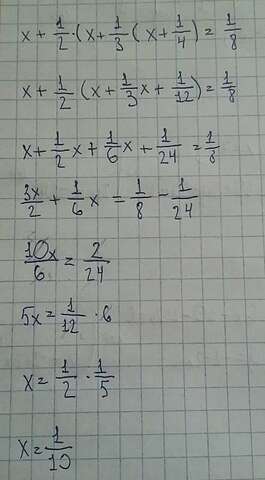 x + 1/2 · (x + 1/3 ( x + 1/4 ) = 1/8
x + 1/2 ( x + 1/3 x + 1/12 ) = 1/8
x + 1/2 x + 1/6 x + 1/24 = 1/8
3x/2 + 1/6 x = 1/8 - 1/24
10x/6 = 2/24
5x = 1/12 · 6
x = 1/2 · 1/5
x = 1/10